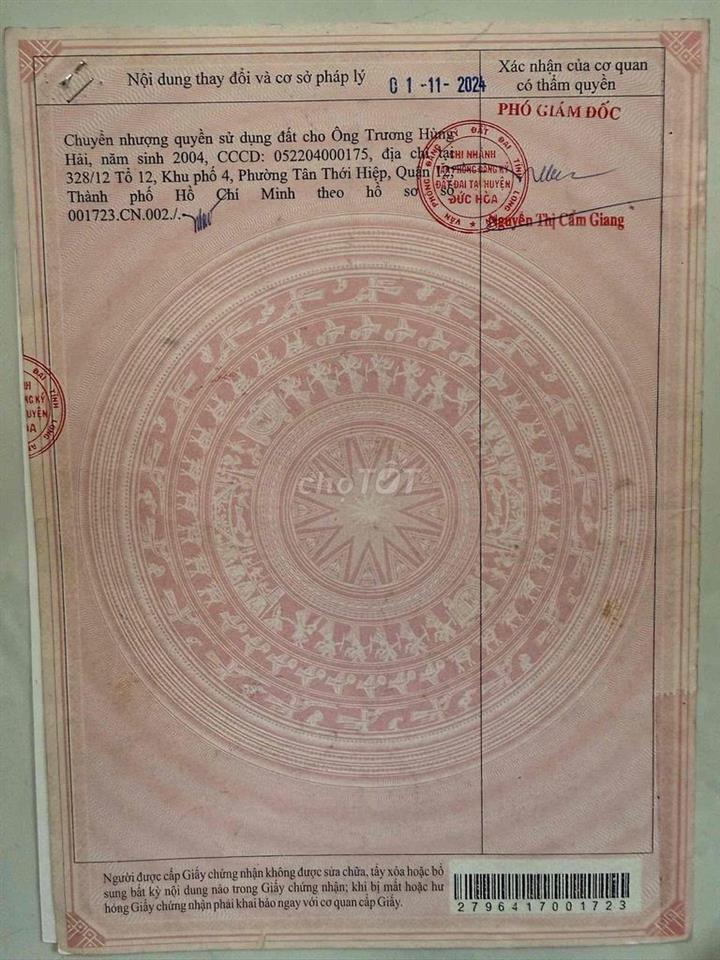 Nội dung thay đổi và cơ sở pháp lý
01-11-2024
Xác nhận của cơ quan
có thẩm quyền
PHÓ GIÁM ĐỐC
Chuyển nhượng quyền sử dụng đất cho Ông Trương Hùng
Hải, năm sinh 2004, CCCD: 052204000175, địa chỉ tại
328/12 Tổ 12, Khu phố 4, Phường Tân Thới Hiệp, Quận 12,
Thành phố Hồ Chí Minh theo hồ sơ số
001723.CN.002./.
VĂN PHÒNG ĐĂNG KÝ ĐẤT ĐAI TỈNH LONG
CHI NHÁNH
VĂN PHÒNG ĐĂNG KÝ
ĐẤT ĐAI TẠI HUYỆN
ĐỨC HÒA
Nguyễn Thị Cẩm Giang
ĐAI TỈNH LONG
NG KÝ
UYỆN
chợTỐT
Người được cấp Giấy chứng nhận không được sửa chữa, tẩy xóa hoặc bổ
sung bất kỳ nội dung nào trong Giấy chứng nhận; khi bị mất hoặc hư
hỏng Giấy chứng nhận phải khai báo ngay với cơ quan cấp Giấy.
2796417001723